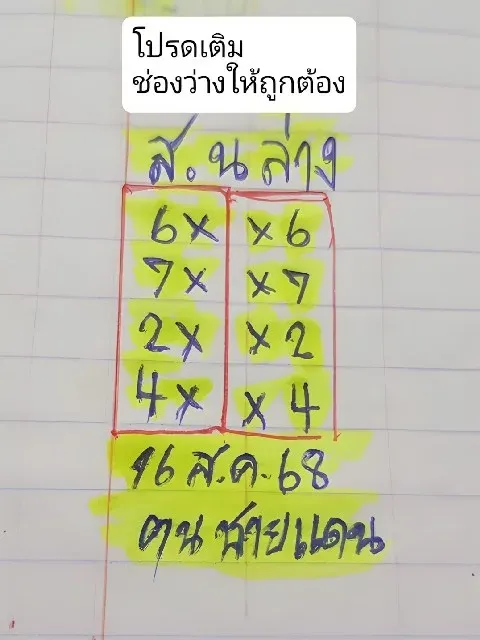 โปรดเติม
ช่องว่างให้ถูกต้อง
ส.น ล่าง
6x x6
7x x7
2x x2
4x x4
16 ส.ค. 68
คนชายแดน